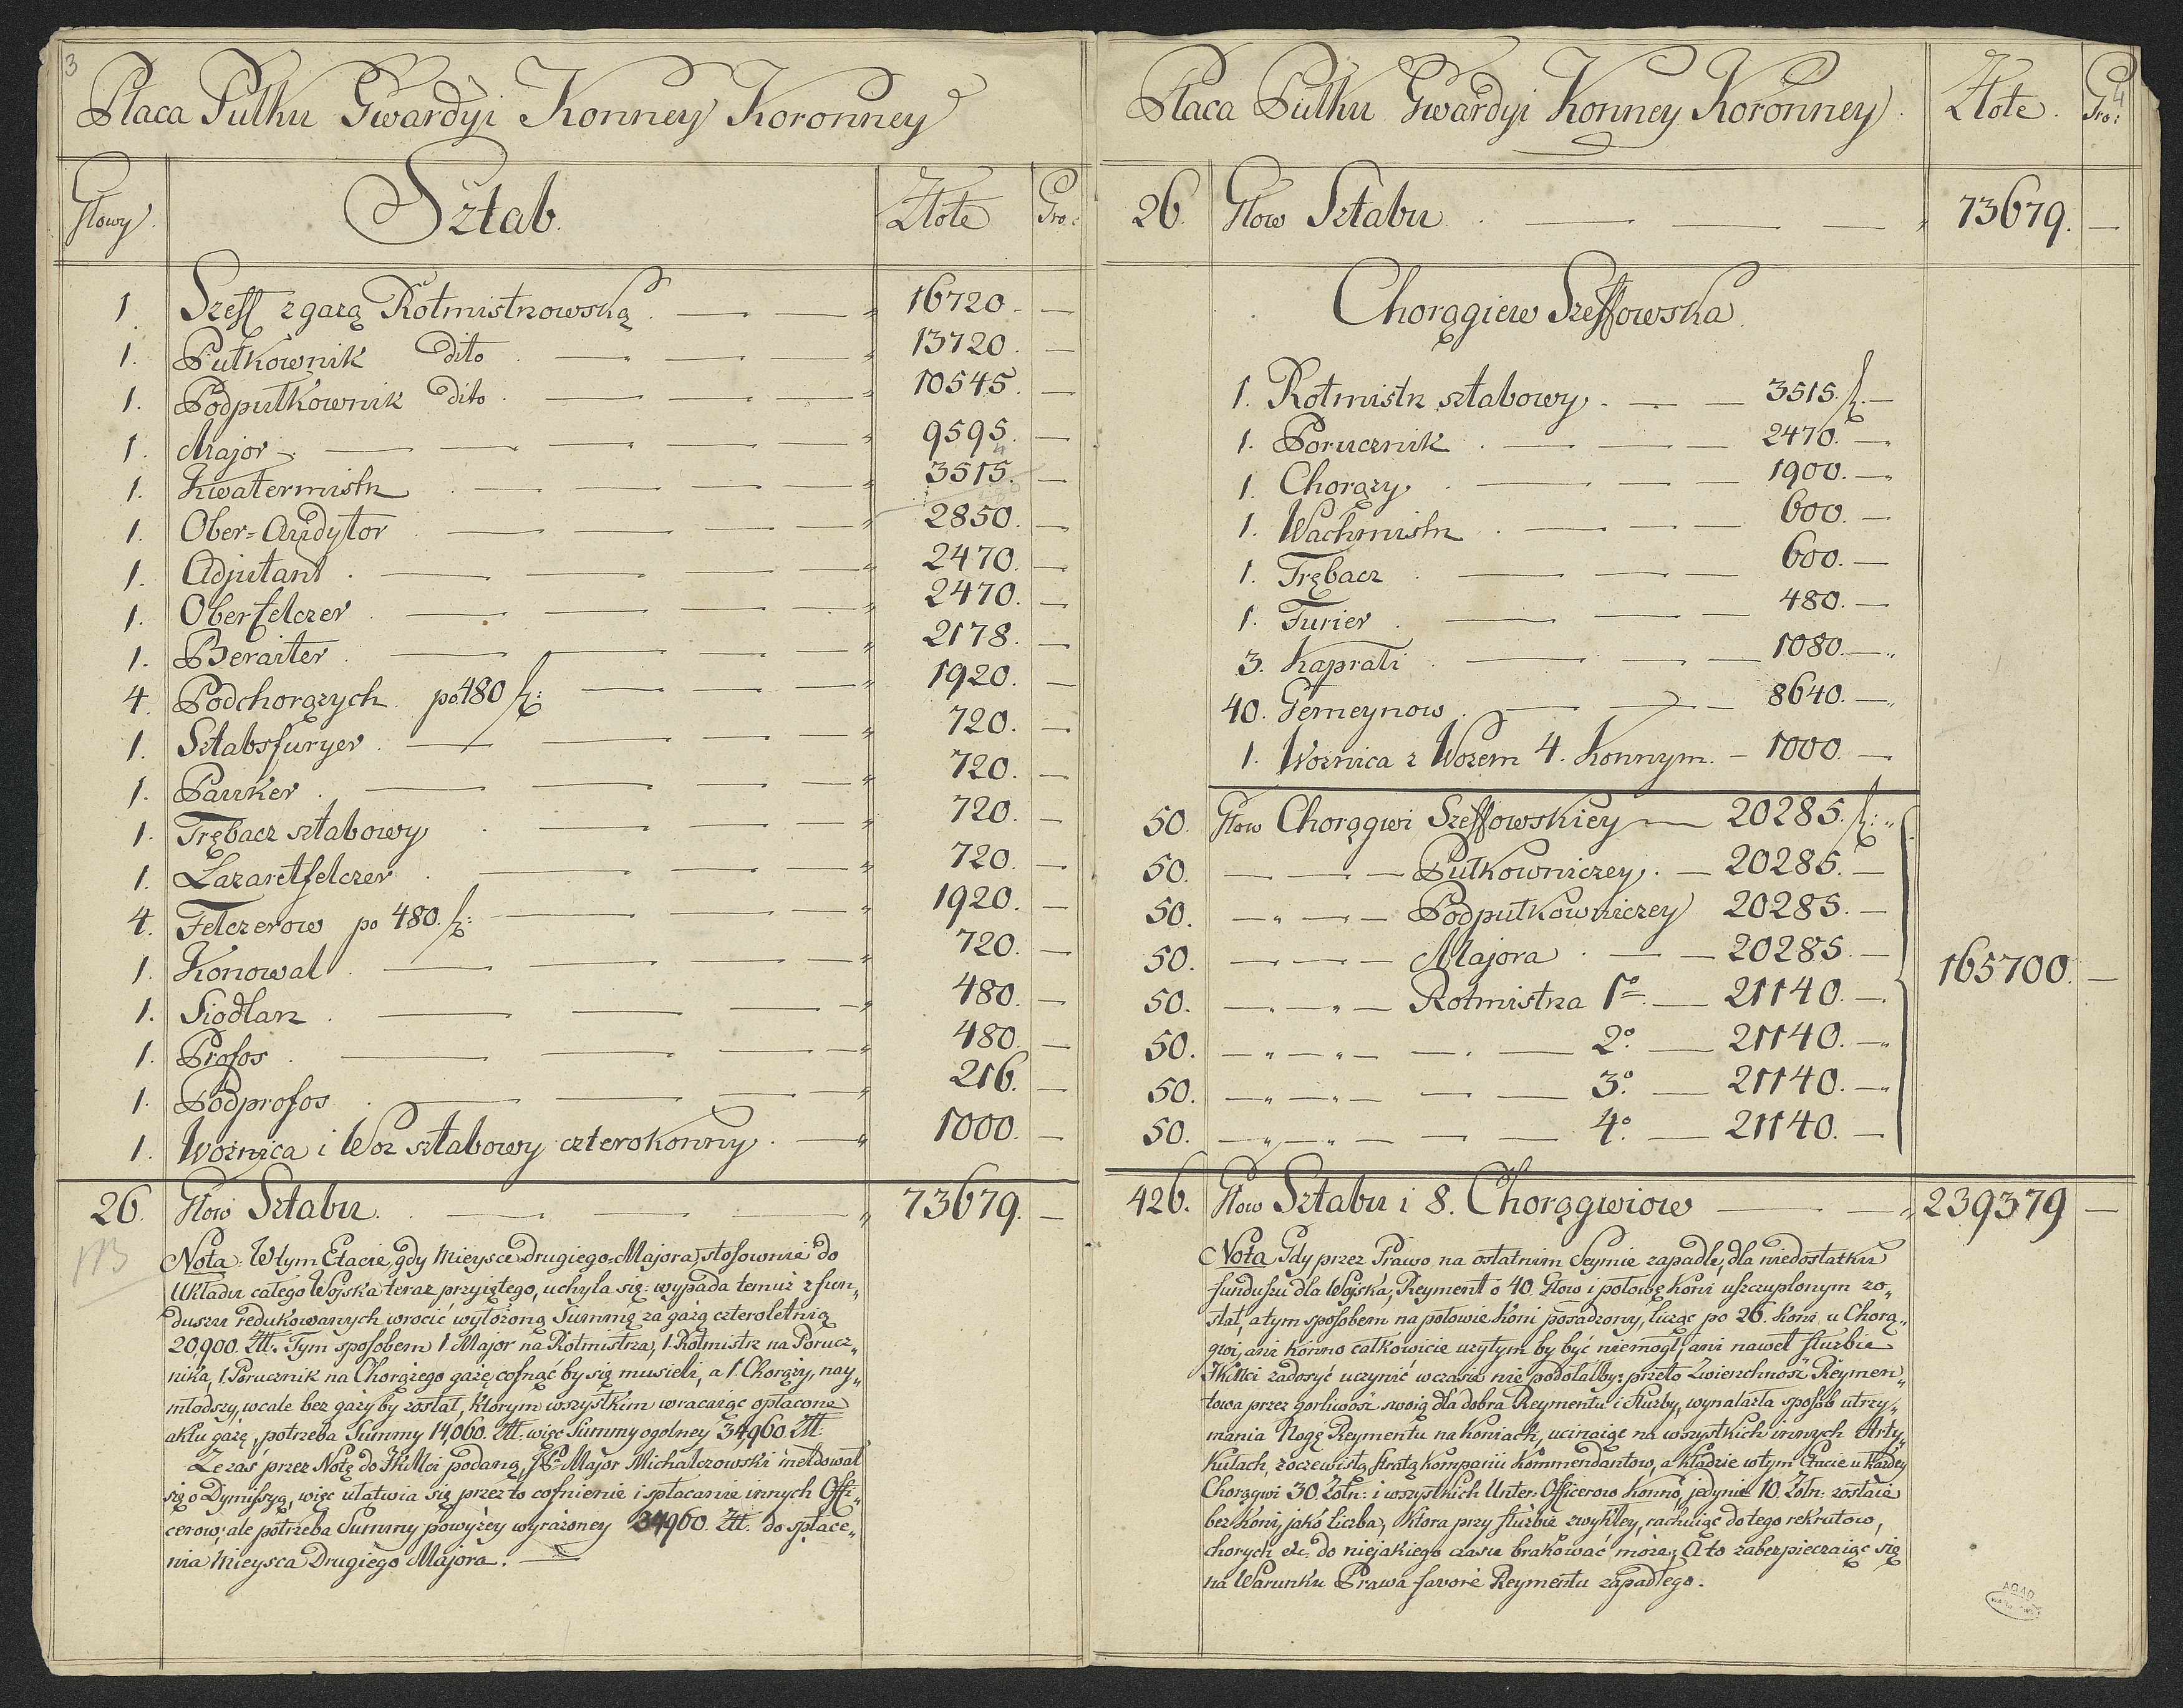 3
Płaca Pułku Gwardyi Konney Koronney
Głowy. Sztab. Złote Gro:
1. Szeff z gażą Rotmistrzowską. 16720. —
1. Pułkownik dito 13720. —
1. Podpułkownik dito 10545. —
1. Major 9595. —
1. Kwatermistrz 3515. —
1. Ober=Audytor 2850. —
1. Adjutant 2470. —
1. Oberfelczer 2470. —
1. Beraiter 2178. —
4. Podchorążych po 480 f: 1920. —
1. Sztabsfuryer 720. —
1. Pauker 720. —
1. Trębacz sztabowy 720. —
1. Lazaretfelczer 720. —
4. Felczerow po 480. f: 1920. —
1. Konował 720. —
1. Siodlarz 480. —
1. Profos 480. —
1. Podprofos 216. —
1. Woźnica i Woz sztabowy czterokonny. 1000. —
26. Głow Sztabu. 73679. —
Nota: W tym Etacie, gdy Mieysce Drugiego=Majora, stosownie do
Układu całego Woyska teraz przyiętego, uchyla się: wypada temuż z fun„
duszu redukowanych wrocić wyłożoną Summę za gażą czteroletnią
20,900. Złł. Tym sposobem 1. Major na Rotmistrza, 1. Rotmistrz na Porucz„
nika, 1. Porucznik na Chorążego gażę cofnąć by się musieli, a 1. Chorąży, nay„
młodszy, wcale bez gaży by został, którym wszystkim wracaiąc opłacone
aktu gażę, potrzeba Summy 14,060. Złł: więc Summy ogolney 34,960. Złł:
Że zaś przez Notę do JKMci podaną, JP. Major Michałczowski meldował
się o Dymissyą, więc ułatwia się przez to cofnienie i spłacanie innych Offi„
cerow; ale potrzeba Summy powyżey wyrażoney 34960. Złł: do spłace„
nia Mieysca Drugiego Majora.
Płaca Pułku Gwardyi Konney Koronney. Złote. Gro:
4
26. Głow Sztabu 73679. —
Chorągiew Szeffowska.
1. Rotmistrz sztabowy. 3515. f. —
1. Porucznik 2470. —
1. Chorąży 1900. —
1. Wachmistrz 600. —
1. Trębacz 600. —
1. Furier 480. —
3. Kaprali 1080. —
40. Gemeynow 8640. —
1. Woźnica z Wozem 4. Konnym. 1000. —
50. Głow Chorągwi Szeffowskiey 20285. f:
50. — Pułkowniczey. 20285. —
50. — Podpułkowniczey 20285. —
50. — Majora 20285. —
165700. —
50. — Rotmistrza 1º 21140. —
50. — 2º 21140. —
50. — 3º 21140. —
50. — 4º 21140. —
426. Głow Sztabu i 8. Chorągwiow 239379 —
Nota Gdy przez Prawo na ostatnim Seymie zapadłe, dla niedostatku
funduszu dla Woyska, Reyment o 40. Głow i połowę koni uszczuplonym zo„
stał, a tym sposobem na połowie koni posadzony, licząc po 26. koni u Chorą„
gwi, ani konno całkowicie użytym by być niemogł, ani nawet służbie
JKMci zadosyć uczynić w czasie nie podołałby: przeto Zwierzchność Reymen„
towa przez gorliwość swoią dla dobra Reymentu i służby, wynalazła sposob utrzy„
mania Nogę Reymentu na koniach, ucinaiąc na wszystkich innych Arty„
kułach, z oczewistą stratą kompanii Kommendantow, a kładzie w tym Etacie u każdey
Chorągwi 30. Żołn: i wszystkich Unter=Officerow konno, jedynie 10. Żołn: zostaie
bez koni, jako liczba, ktora przy służbie zwykłey, rachuiąc do tego rekrutow,
chorych etc: do niejakiego czasu brakować może; A to zabezpieczaiąc się
na Warunku Prawa favore Reymentu zapadłego.
AGAD